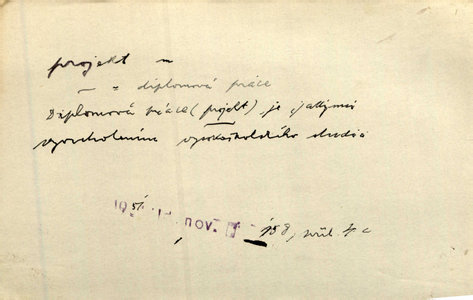 projekt m
— = diplomová práce
Diplomová práce (projekt) je jakýmsi
vyvrcholením vysokoškolského studia
1951 nov.
158, příl. 4 c